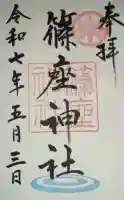 奉拝
篠座神社
令和七年五月三日